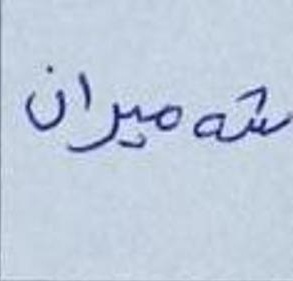 شه میران